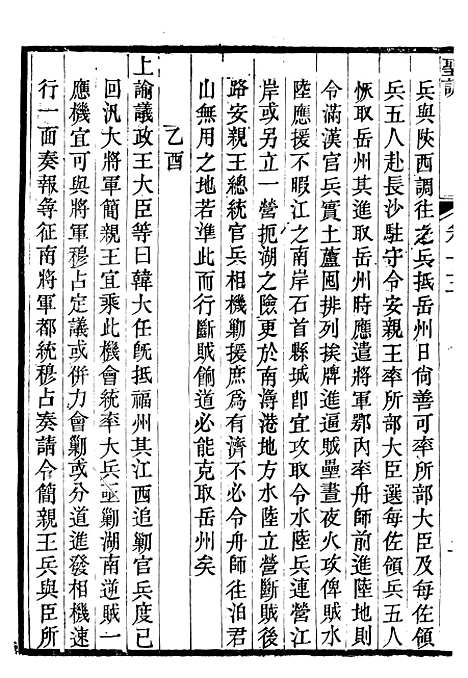 聖訓
兵與陝西調往之兵抵岳州日尙善可率所部大臣及每佐領
兵五人赴長沙駐守令安親王率所部大臣選每佐領兵五人
恢取岳州其進取岳州時應遣將軍鄂內率舟師前進陸地則
令滿漢官兵實土蘆囤排列挨牌進逼賊壘晝夜火攻俾賊水
陸應援不暇江之南岸石首縣城卽宜攻取令水陸兵連營江
岸或另立一營扼湖之險更於南潯港地方水陸立營斷賊後
路安親王總統官兵相機勦援庶爲有濟不必令舟師往泊君
山無用之地若準此而行斷賊餉道必能克取岳州矣
乙酉
上諭議政王大臣等曰韓大任旣抵福州其江西追勦官兵度已
回汛大將軍簡親王宜乘此機會統率大兵亟勦湖南逆賊一
應機宜可與將軍穆占定議或併力會勦或分道進發相機速
行一面奏報尋征南將軍都統穆占奏請令簡親王兵與臣所